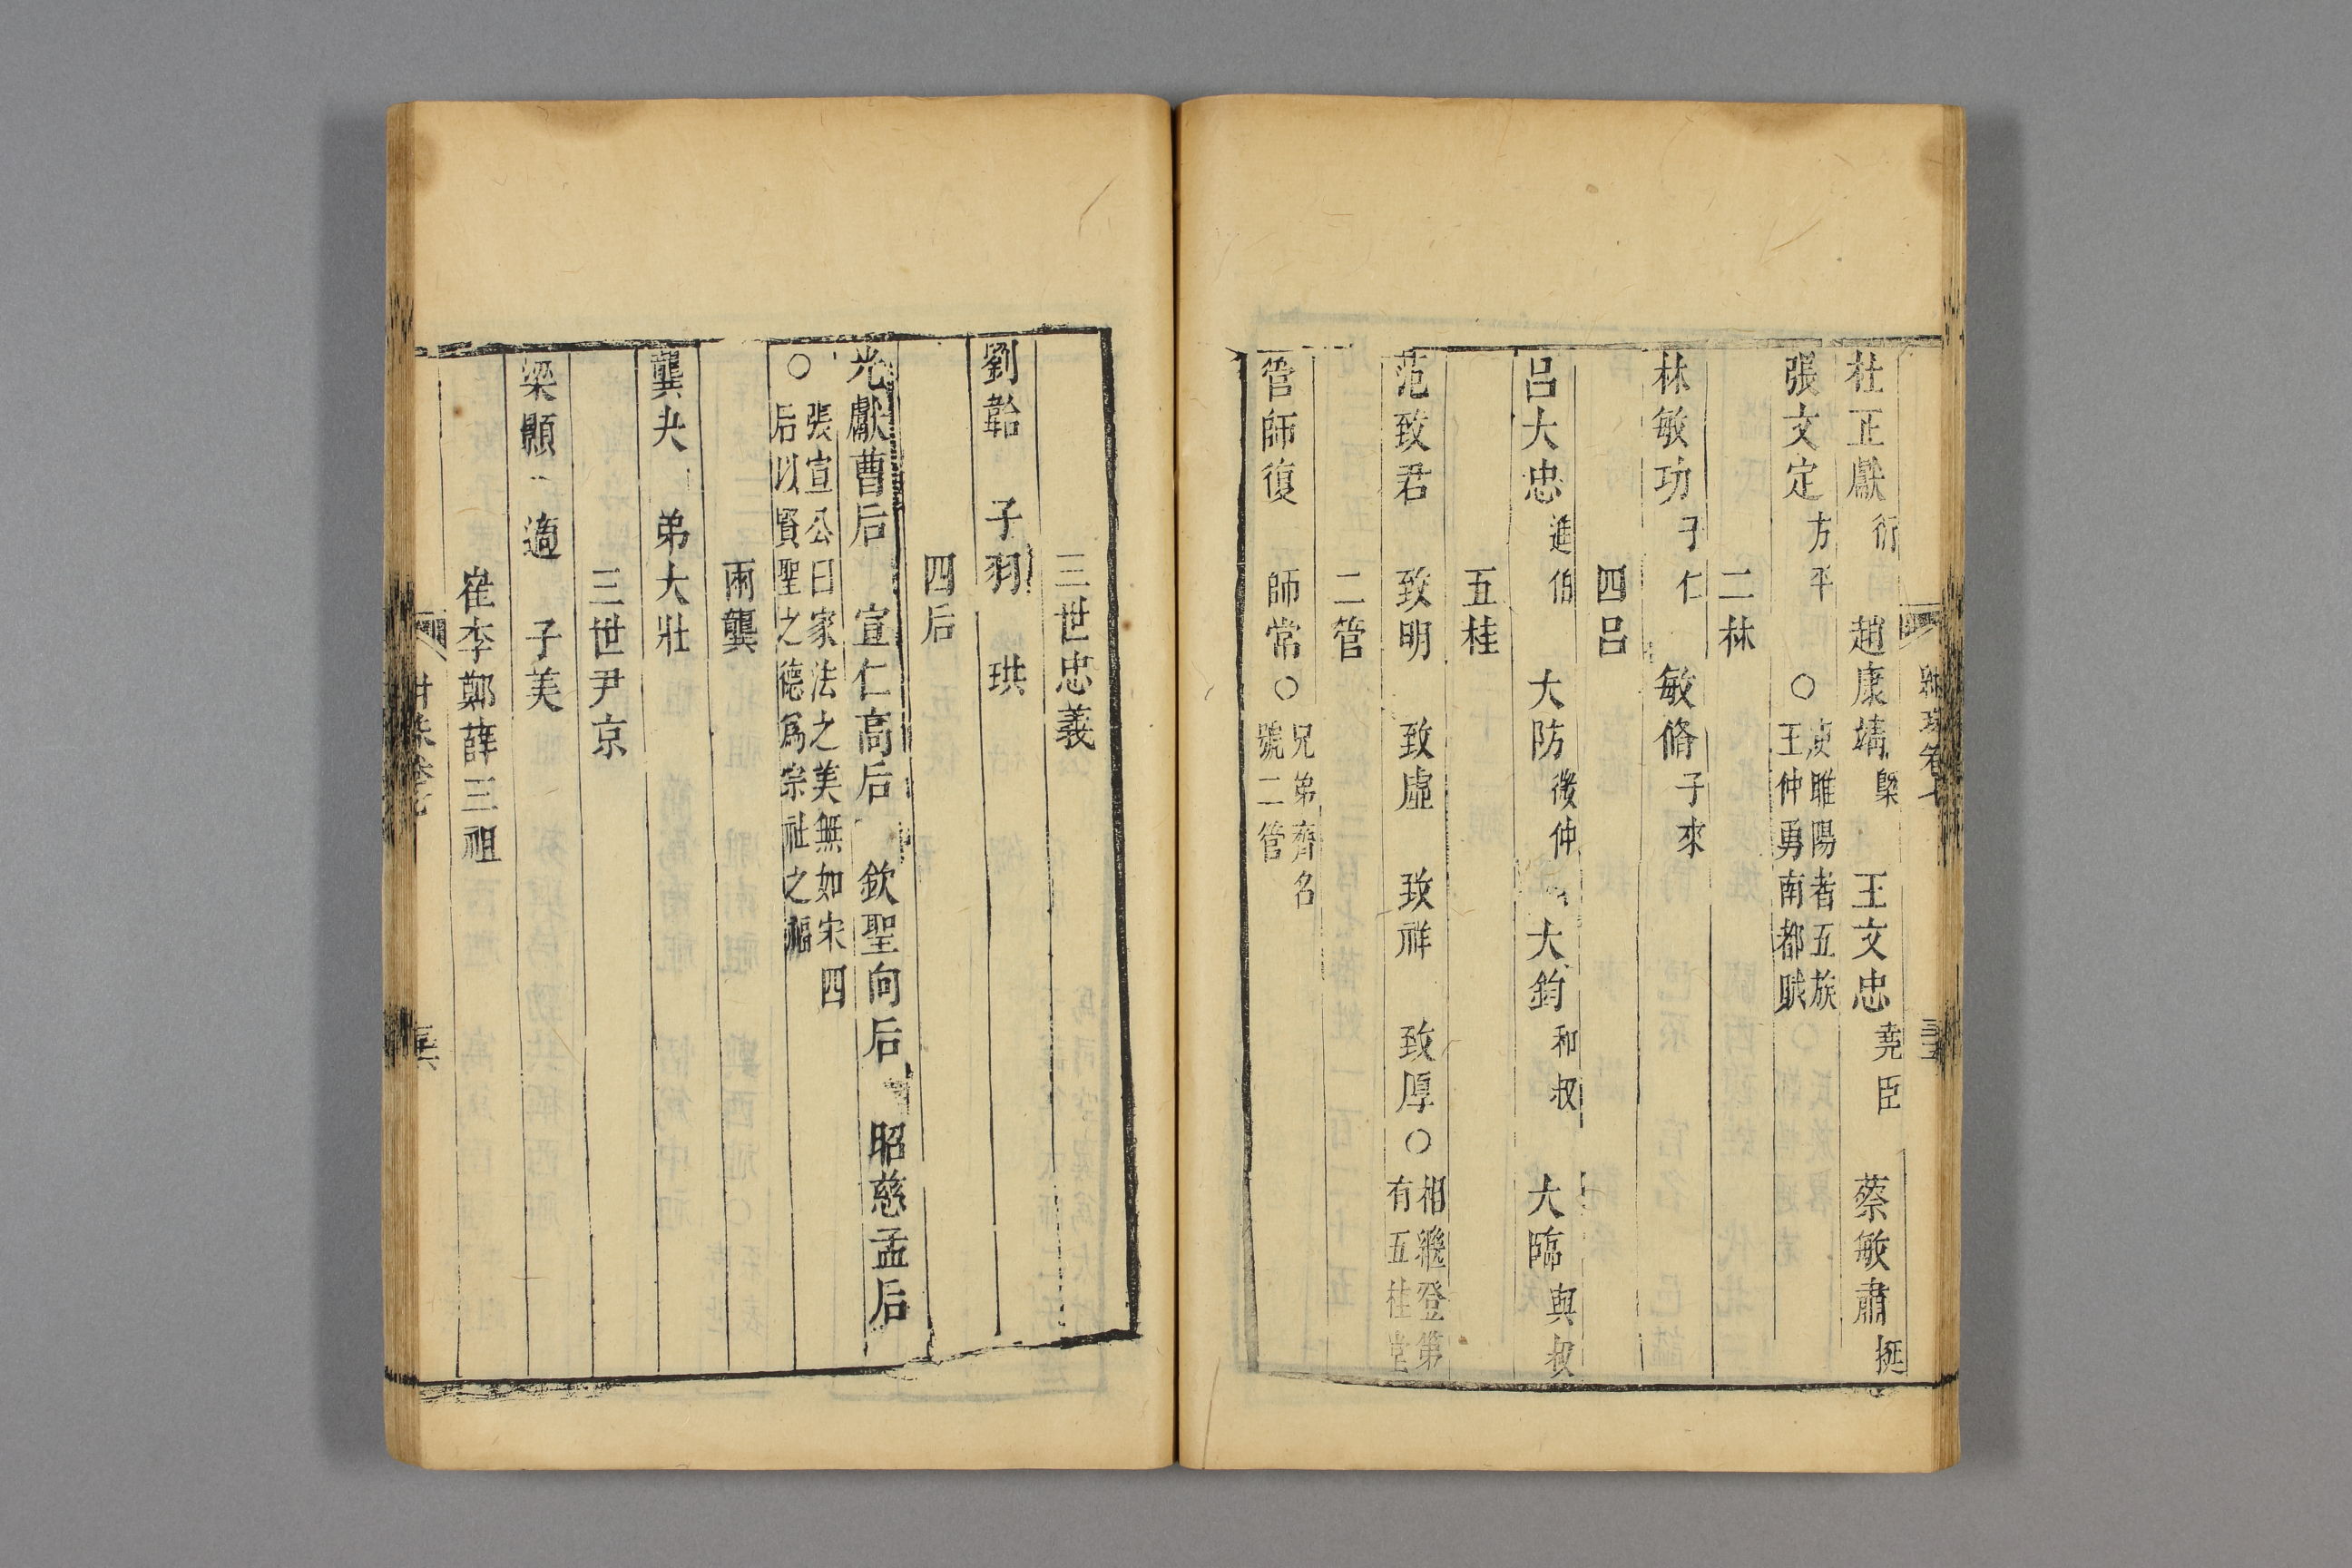 杜正獻衍 趙康靖槩 王文忠堯臣 蔡敏肅挺
張文定方平 ○貴睢陽者五族
王仲勇南都賦
二林
林敏功子仁 敏脩子來
四呂
呂大忠進伯 大防微仲 大鈞和叔 大臨與叔
五桂
范致君 致明 致虛 致祥 致厚○相繼登第
有五桂堂
二管
管師復 師常○兄弟齊名
號二管
三世忠義
劉韐 子羽 珙
四后
光獻曹后 宣仁高后 欽聖向后 昭慈孟后
○張宣公曰家法之美無如宋四
后以賢聖之德爲宗社之福
兩龔
龔夬 弟大壯
三世尹京
梁顥 適 子美
崔李鄭薛三祖